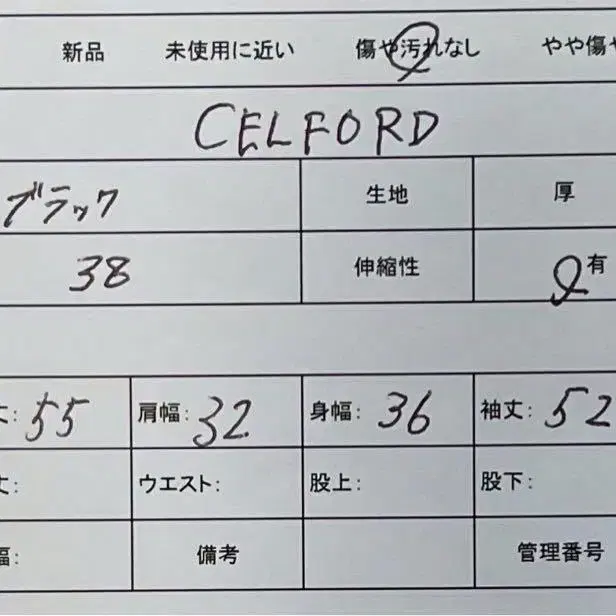 新品 未使用に近い 傷や汚れなし やや傷や
CELFORD
ブラック 生地 厚
38 伸縮性 有
丈: 55 肩幅: 32 身幅: 36 袖丈: 52
丈: ウエスト: 股上: 股下:
幅: 備考 管理番号